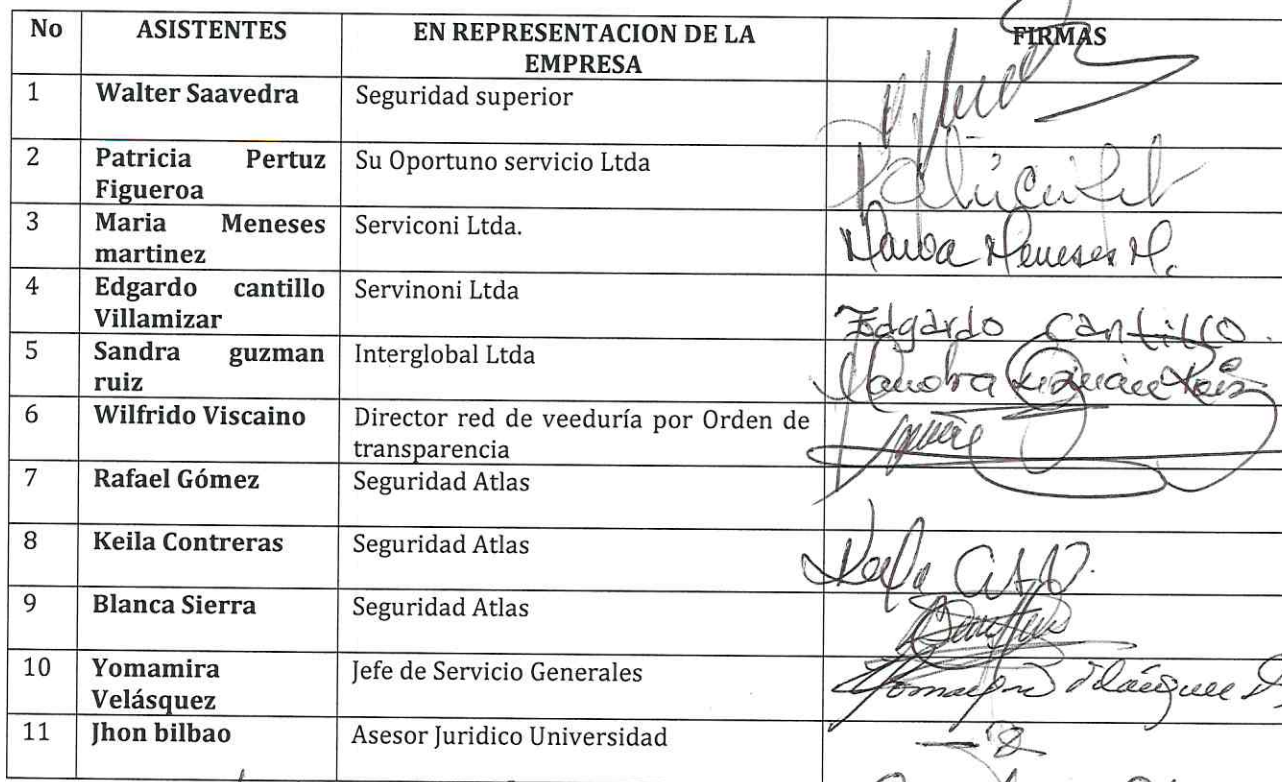 No ASISTENTES EN REPRESENTACION DE LA FIRMAS
EMPRESA
1 Walter Saavedra Seguridad superior
2 Patricia Pertuz Su Oportuno servicio Ltda
Figueroa
3 Maria Meneses Serviconi Ltda.
martinez Meneses M.
4 Edgardo cantillo Servinoni Ltda
Villamizar Edgardo Cantillo.
5 Sandra guzman Interglobal Ltda
ruiz Sandra Guzmán Ruiz
6 Wilfrido Viscaino Director red de veeduría por Orden de
transparencia
7 Rafael Gómez Seguridad Atlas
8 Keila Contreras Seguridad Atlas
9 Blanca Sierra Seguridad Atlas
10 Yomamira Jefe de Servicio Generales
Velásquez
11 Jhon bilbao Asesor Juridico Universidad